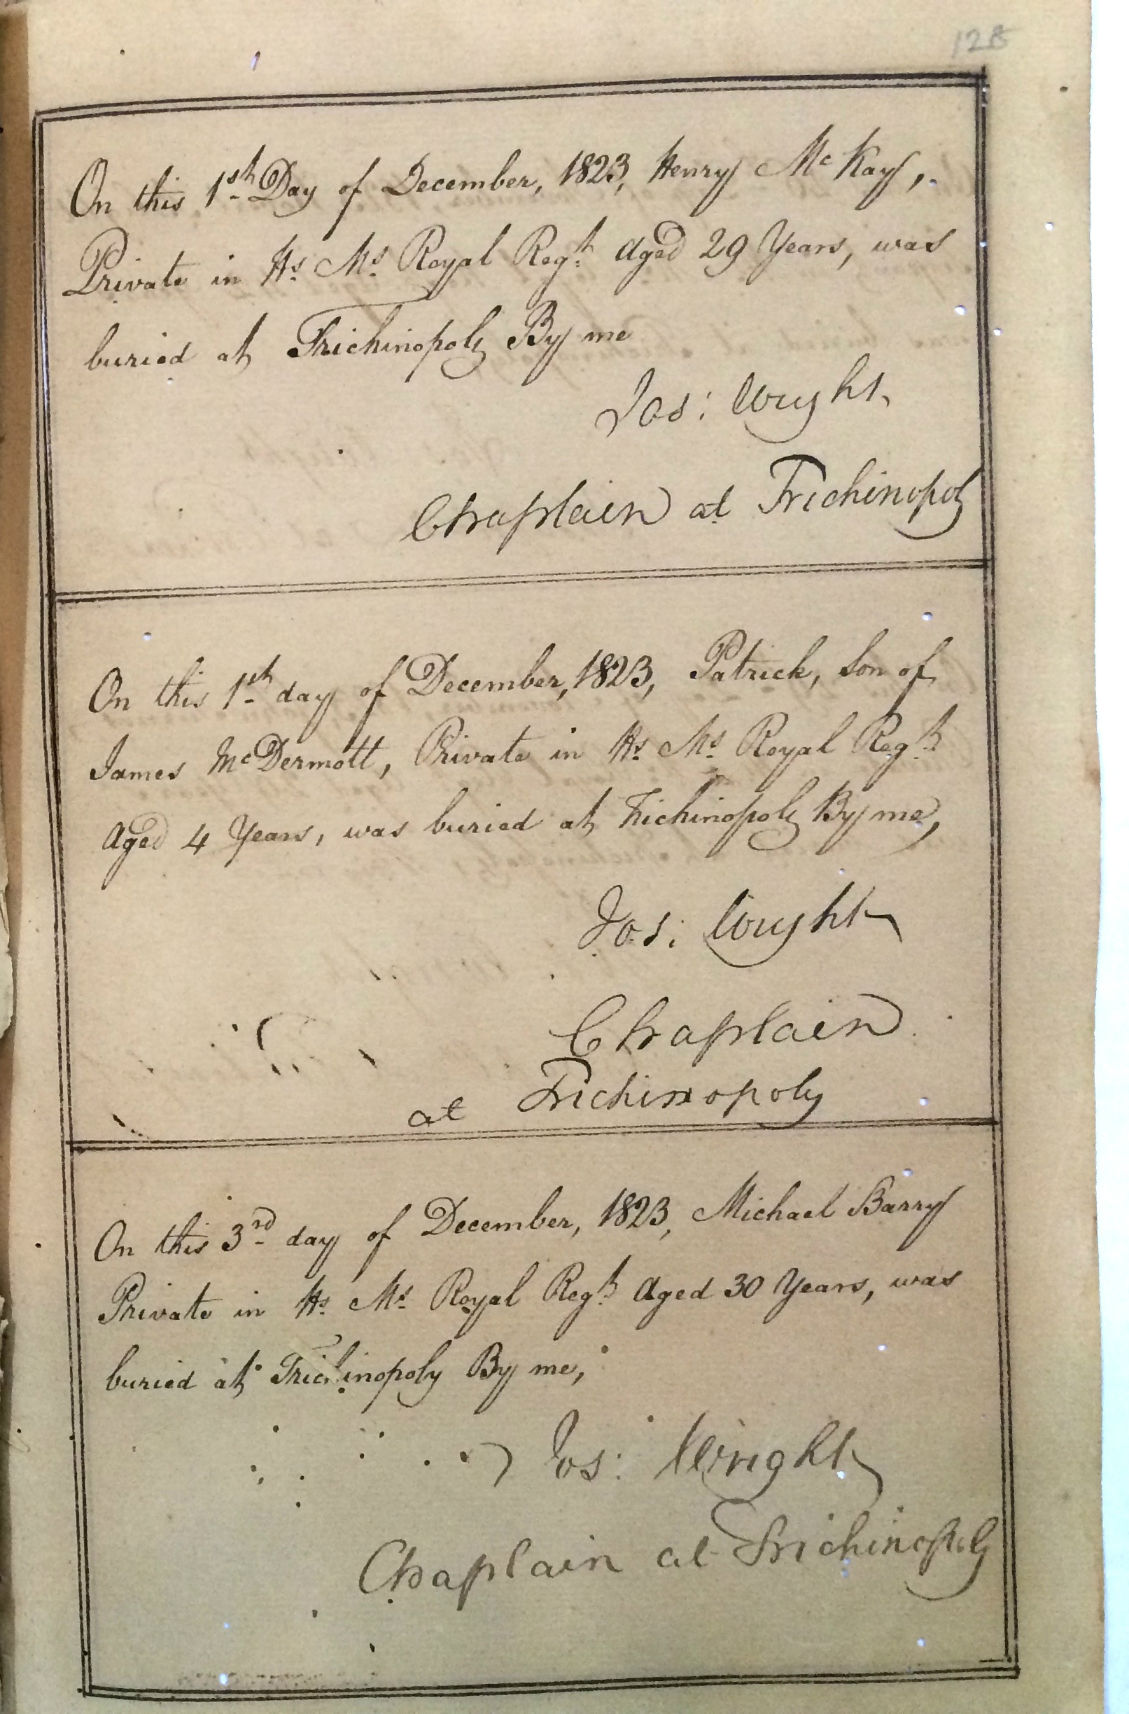 128
On this 1st Day of December, 1823, Henry Mc Kay,
Private in Hs. Ms. Royal Regt. Aged 29 Years, was
buried at Trichinopoly By me
Jos: Wright,
Chaplain at Trichinopoly
On this 1st day of December, 1823, Patrick, Son of
James McDermott, Private in Hs. Ms. Royal Regt.
Aged 4 Years, was buried at Trichinopoly By me,
Jos: Wright
Chaplain
at Trichinopoly
On this 3rd day of December, 1823, Michael Barry
Private in Hs. Ms. Royal Regt. Aged 30 Years, was
buried at Trichinopoly By me,
Jos: Wright
Chaplain at Trichinopoly